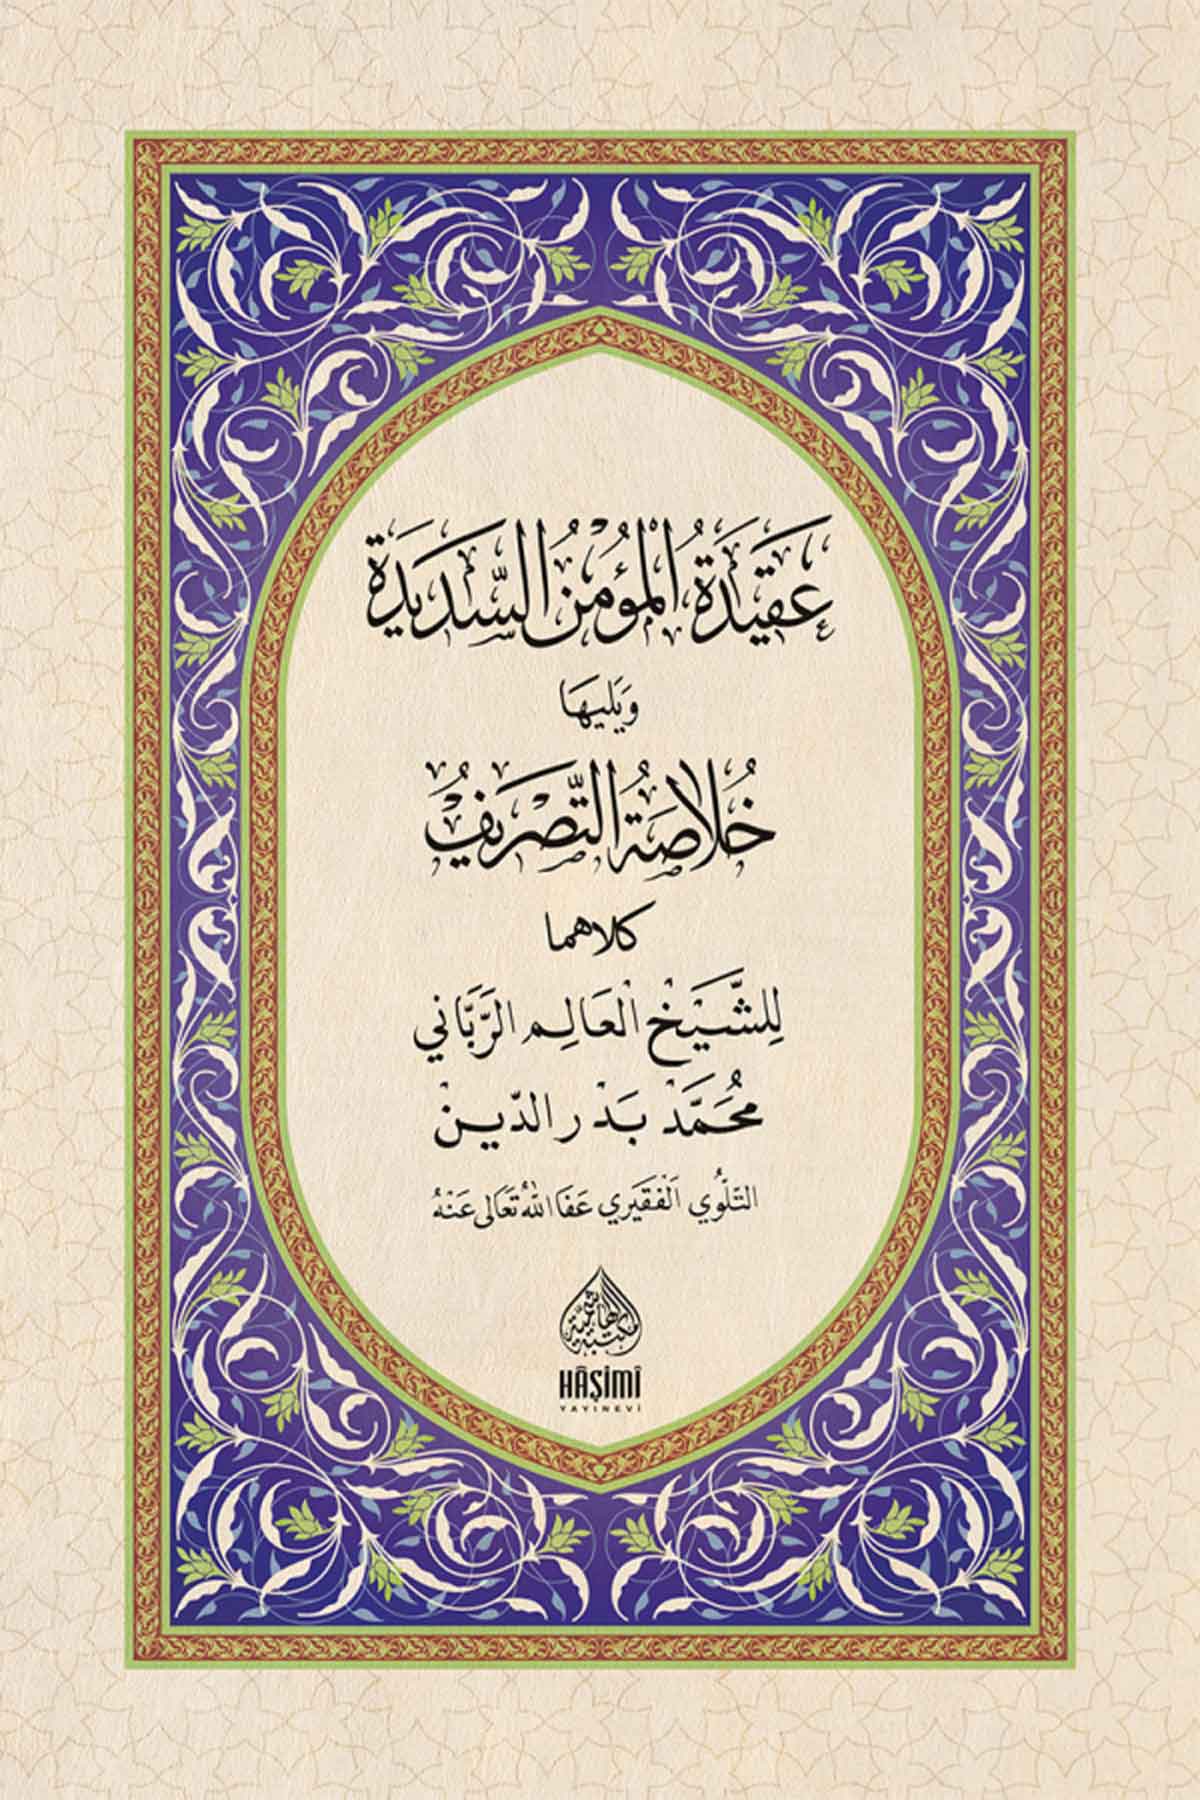 عَقِيدَةُ الْمُؤْمِنِ السَّدِيدَةُ
وَيَلِيهَا
خُلَاصَةُ التَّصْرِيفِ
كلاهما
لِلشَّيْخِ الْعَالِمِ الرَّبَّانِي
مُحَمَّدْ بَدْرِ الدِّينْ
التِّلُّوِي الْفَقِيرِي عَفَا اللّٰهُ تَعَالَى عَنْهُ
المكتبة الهاشمية
HÂŞİMÎ
YAYINEVİ